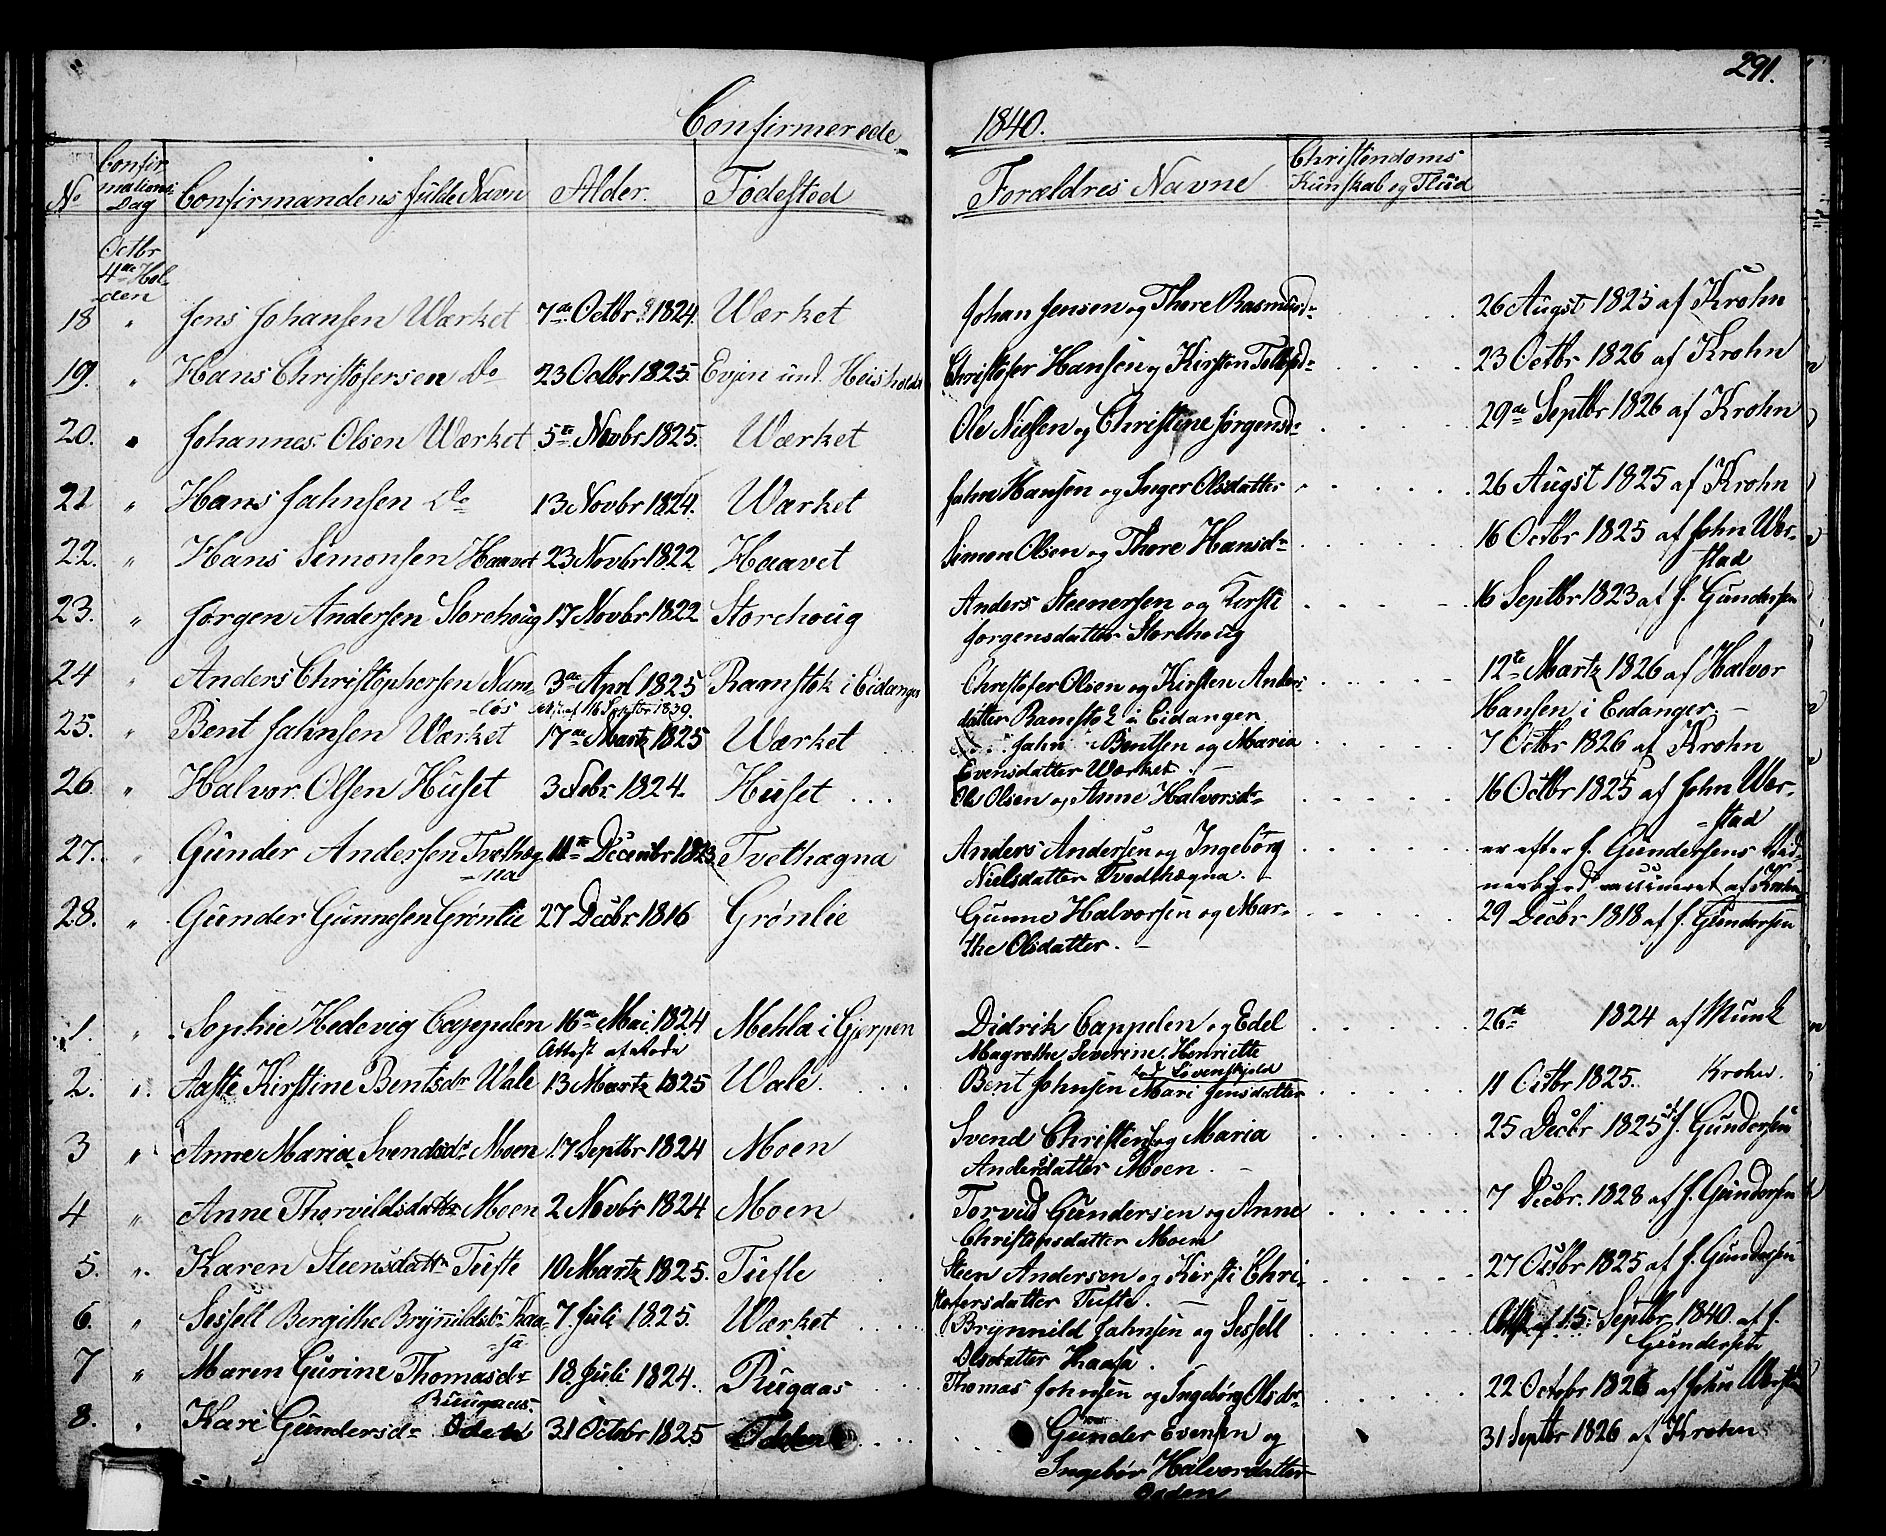 291.
Confirmerede 1840.
No Confirmations Dag Confirmandens fulde Navn Alder. Fødested Forældres Navne Christendoms Kunskab og Flid
Octbr 4de Holden
18 " Jens Johansen Wærket 7de Octbr 1824. Wærket Johan Jensen og Thore Rasmusd- 26 Augst 1825 af Krohn
19. " Hans Christofersen Do 23 Octbr 1825. Evjen und. Christofer Hansen og Kirsten Tollefsd- 23 Octbr 1826 af Krohn
20. " Johannes Olsen Wærket 5te Novbr 1825. Wærket Ole Nielsen og Christine Jørgensd- 29de Septbr 1826 af Krohn
21 " Hans Jahnsen Do 13 Novbr 1824. Wærket Jahn Hansen og Inger Olsdatter 26 Augst 1825 af Krohn
22. " Hans Simonsen Haavet 23 Novbr 1822 Haavet Simon Olsen og Thore Hansd- 16 Octbr 1825 af John Wer-
stad
23. " Jørgen Andersen Storehoug 17 Novbr 1822 Storehoug Anders Steenersen og Kirsti 16 Septbr 1823 af J. Gundersen
Jorgensdatter Storehoug
24 " Anders Christophersen Nam- 3de Aprl 1825 Ramstok i Eidanger Christofer Olsen og Kirsten Anders 12te Martz 1826 af Halvor
-løs 16 Septbr 1839. datter Ramstok i Eidanger Hansen i Eidanger. -
25. " Bent Jahnsen Wærket 17de Martz 1825 Wærket Jahn Bentsen og Maria 7 Octbr 1826 af Krohn
Evensdatter Wærket. -
26. " Halvor Olsen Huset 3 Febr. 1824. Huset Ole Olsen og Anne Halvorsd- 16 Octbr 1825 af John Wer-
-stad
27. " Gunder Andersen Tvethæg 11te Decembr 1823 Tvethægna Anders Andersen og Ingeborg er efter J. Gundersens Vid-
-na Nielsdatter Tvedthægna. nesbyrd vaccineret af Krohn
28. " Gunder Gunnesen Grønlie 27 Decbr 1816 Grønlie Gunne Halvorsen og Mar- 29 Decbr 1818 af J. Gundersen
the Olsdatter. -
1. " Sophie Hedevig Cappelen 16de Mai 1824 Mehla i Gjerpen Didrik Cappelen og Edel 26de 1824 af Munk
Attest af Rode Magrethe Severine Henriette
Løvenskjold
2. " Aaste Kirstine Bentsdr Wale 13 Martz 1825 Wale. Bent Johnsen Mari Jensdatter 11 Octbr 1825. Krohn.
3 " Anne Maria Svendsdr Moen 17 Septbr 1824 Moen Svend Christens og Maria 25 Decbr 1825 af J. Gundersen
Andersdatter Moen. -
4 " Anne Thorvildsdattr Moen 2 Novbr 1824. Moen Torvid Gundersen og Anne 7 Decbr. 1828 af J. Gundersen
Christensdatter Moen
5. " Karen Steensdattr Tufte 10 Martz 1825. Tufte Steen Andersen og Kirsti Chri- 27 Octbr 1825 af J. Gundersen
stofersdatter Tufte.
6. " Sessell Bergithe Brynnildsdr Kaa- 7. Juli 1825. Wærket Brynnild Jahnsen og Sessell 15 Septbr 1840. af J.
-sa Olsdatter Kaasa. Gundersen
7 " Maren Gurine Thomasdr 18 Juli 1824. Rugaas Thomas Johnsen og Ingeborg Olsdr 22 Octobr 1826 af John Werstad
Ruugaas.
8. " Kari Gundersdr Odden 31 Octbr 1825 Odden Gunder Evensen og 31 Septbr 1826 af Krohn
Ingebor Halvorsdatter
Odden